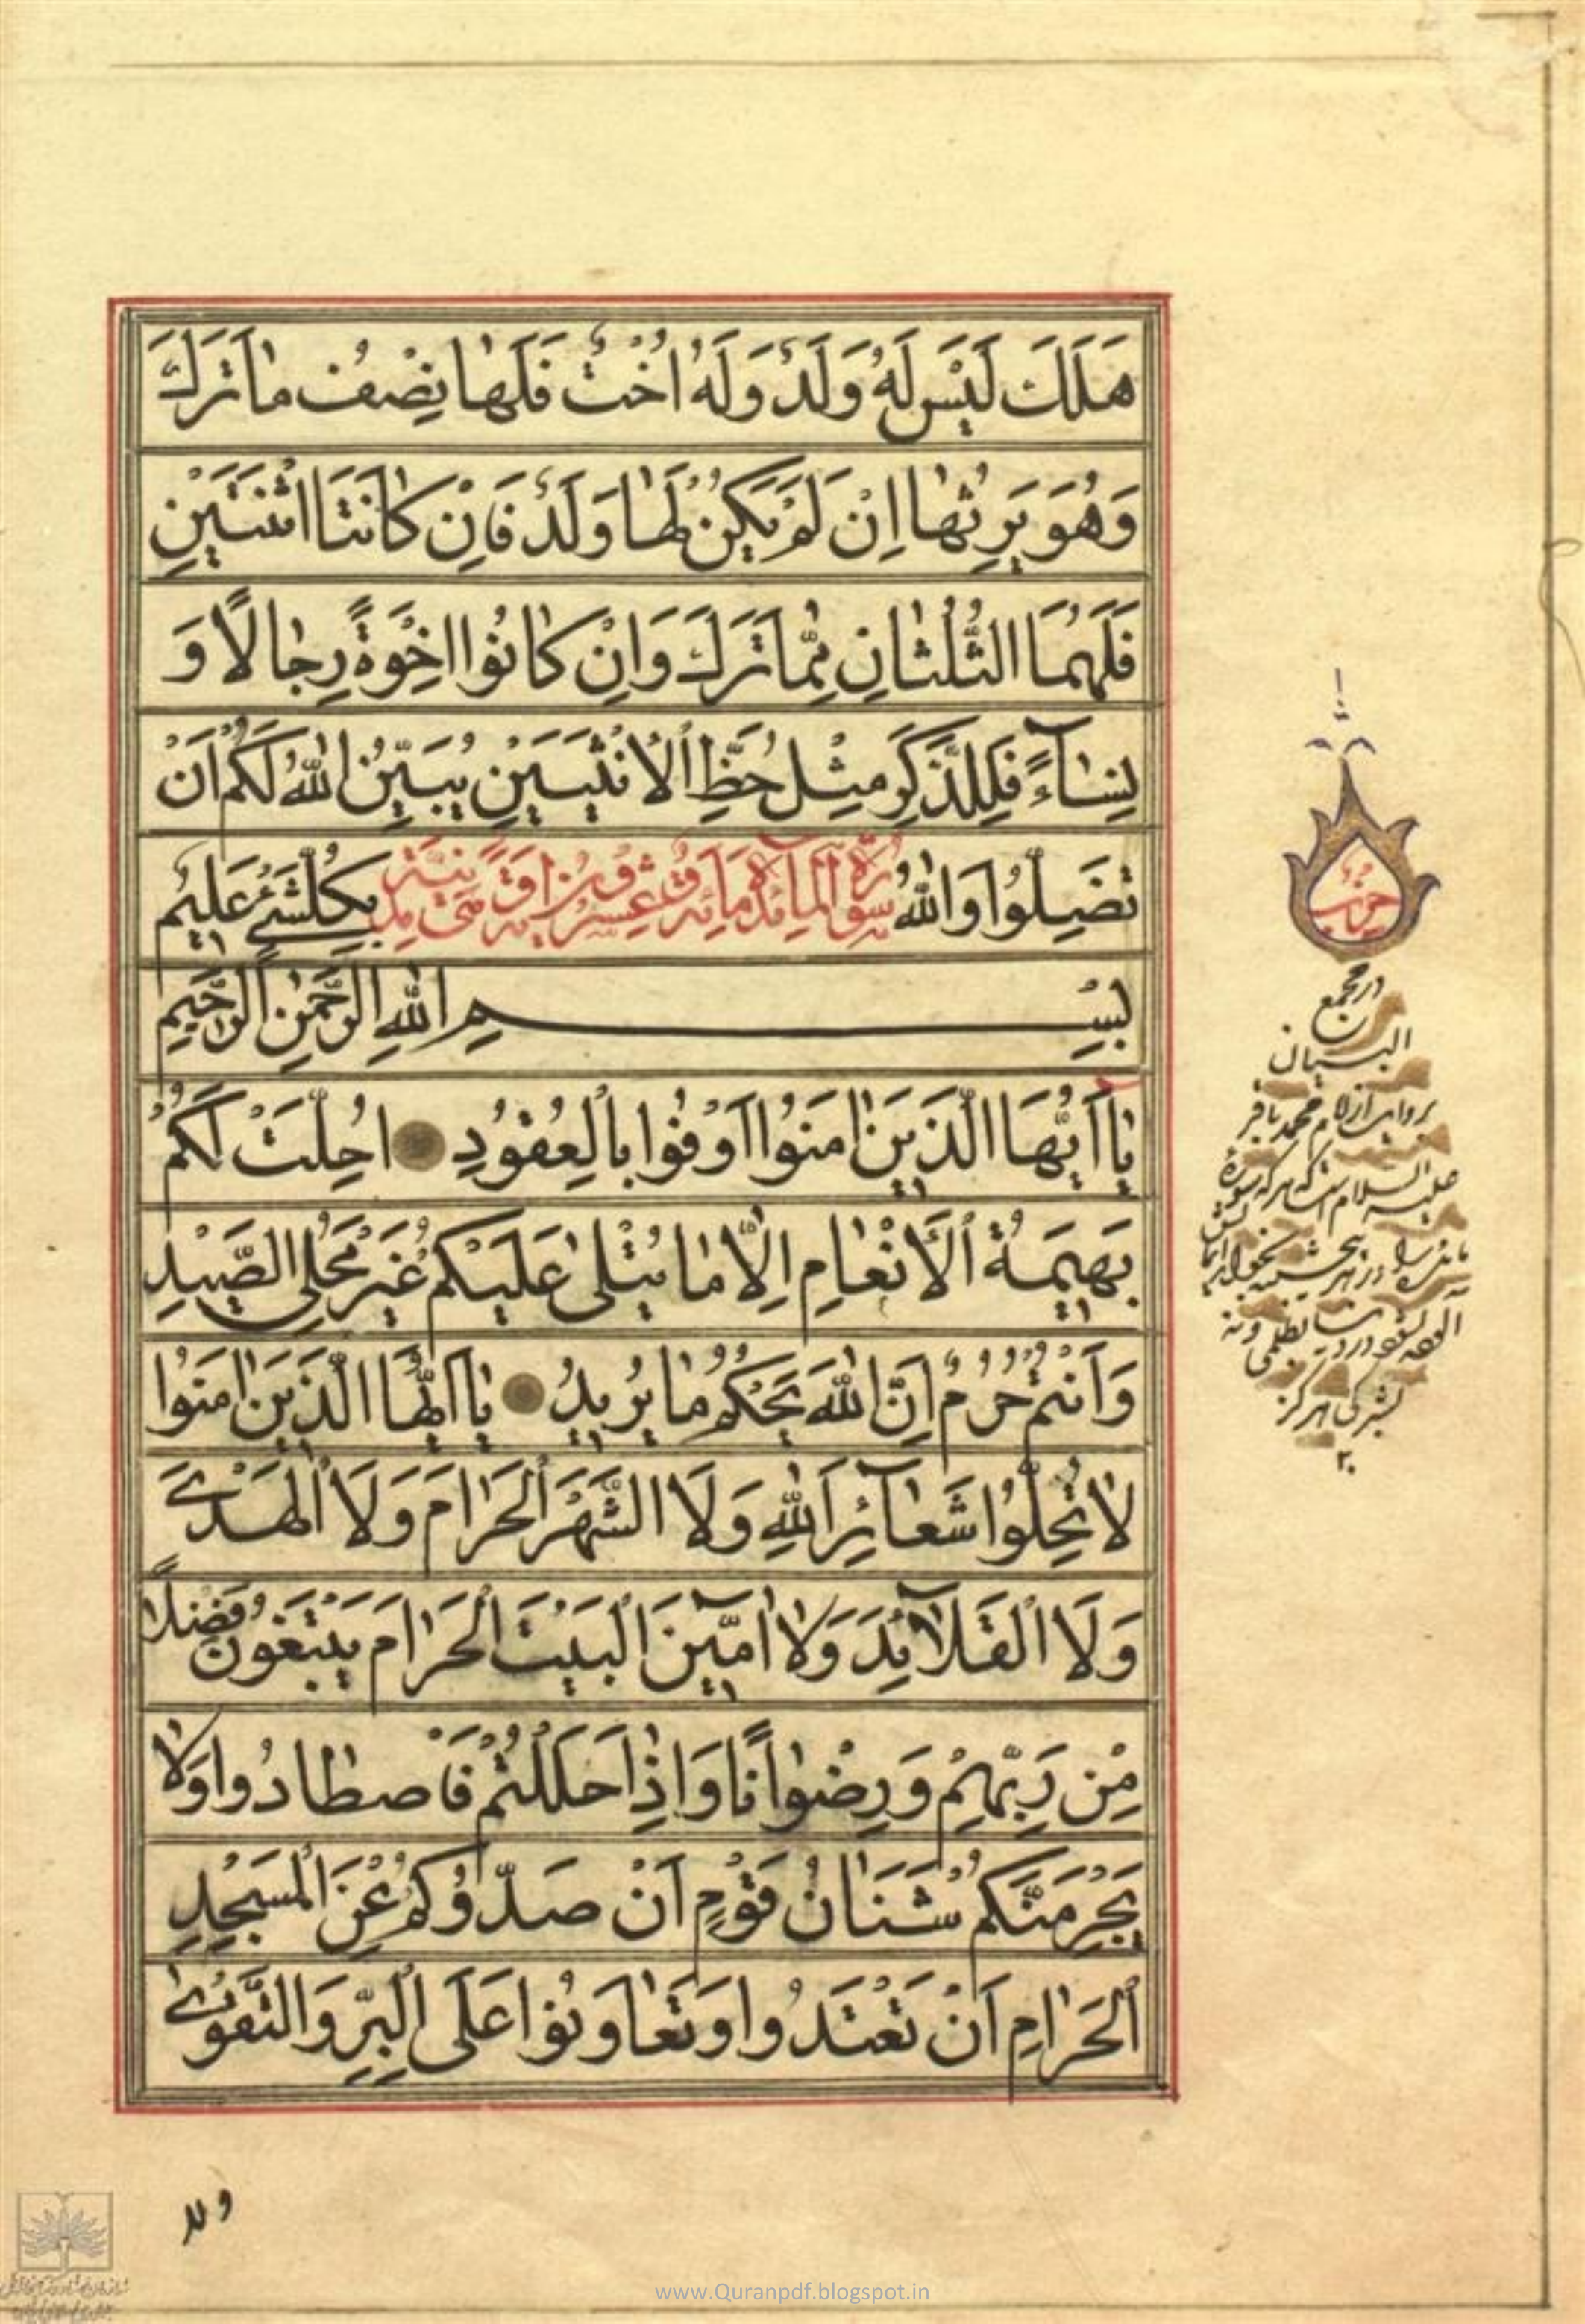 هَلَكَ لَيْسَ لَهُ وَلَدٌ وَلَهُ اُخْتٌ فَلَهٰا نِصْفُ مٰا تَرَكَ
وَهُوَ يَرِثُهٰا اِنْ لَمْ يَكُنْ لَهٰا وَلَدٌ فَاِنْ كٰانَتَا اثْنَتَيْنِ
فَلَهُمَا الثُّلُثٰانِ مِمّٰا تَرَكَ وَاِنْ كٰانُوا اِخْوَةً رِجٰالًا وَ
نِسٰآءً فَلِلذَّكَرِ مِثْلُ حَظِّ الْاُنْثَيَيْنِ يُبَيِّنُ اللّٰهُ لَكُمْ اَنْ
تَضِلُّوا وَاللّٰهُ بِكُلِّ شَيْءٍ عَلِيمٌ
سورة المآئدة مائة وعشرون
بِسْمِ اللّٰهِ الرَّحْمٰنِ الرَّحِيمِ
يٰآ اَيُّهَا الَّذِينَ اٰمَنُوا اَوْفُوا بِالْعُقُودِ اُحِلَّتْ لَكُمْ
بَهِيمَةُ الْاَنْعٰامِ اِلّٰا مٰا يُتْلٰى عَلَيْكُمْ غَيْرَ مُحِلِّي الصَّيْدِ
وَاَنْتُمْ حُرُمٌ اِنَّ اللّٰهَ يَحْكُمُ مٰا يُرِيدُ يٰآ اَيُّهَا الَّذِينَ اٰمَنُوا
لٰا تُحِلُّوا شَعٰآئِرَ اللّٰهِ وَلَا الشَّهْرَ الْحَرٰامَ وَلَا الْهَدْيَ
وَلَا الْقَلٰآئِدَ وَلٰا آمِّينَ الْبَيْتَ الْحَرٰامَ يَبْتَغُونَ فَضْلًا
مِنْ رَبِّهِمْ وَرِضْوٰانًا وَاِذٰا حَلَلْتُمْ فَاصْطٰادُوا وَلٰا
يَجْرِمَنَّكُمْ شَنَاٰنُ قَوْمٍ اَنْ صَدُّوكُمْ عَنِ الْمَسْجِدِ
الْحَرٰامِ اَنْ تَعْتَدُوا وَتَعٰاوَنُوا عَلَى الْبِرِّ وَالتَّقْوٰى
حزب
در مجمع
البیان
روایت از امام محمد باقر
علیه السلام است که هرکه سوره
مائده را در هر پنجشنبه بخواند ایمان
بظلمی و نه
بشرکی هرگز
ولا
www.Quranpdf.blogspot.in